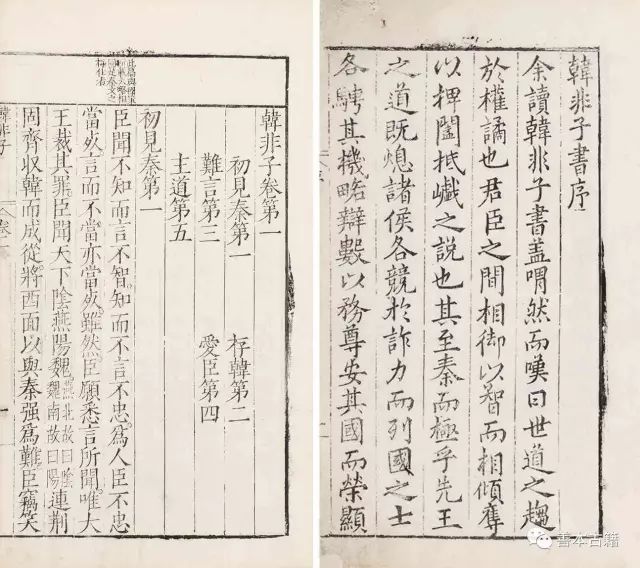 韓非子書序
余讀韓非子書盖喟然而嘆曰世道之趨
於權譎也君臣之間相御以智而相傾奪
以捭闔抵巇之説也其至秦而極乎先王
之道既熄諸侯各競於詐力而列國之士
各騁其機略辯數以務尊安其國而榮顯
韓非子卷第一
初見秦第一 存韓第二
難言第三 愛臣第四
主道第五
初見秦第一
臣聞不知而言不智知而不言不忠爲人臣不忠
當死言而不當亦當死雖然臣願悉言所聞唯大
王裁其罪臣聞天下陰燕陽魏燕北故曰陰魏南故曰陽連荆
固齊収韓而成從將西面以與秦强爲難臣竊笑
韓非子 卷一
善本古籍